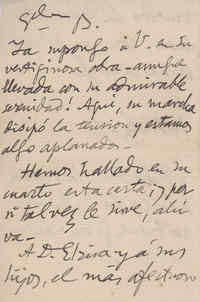 Ya supongo á V. en su
vertiginosa obra - aunque
llevada con su admirable
serenidad! Aquí, su marcha
disipó la tension y estamos
algo aplanados.
Hemos hallado en su
cuarto esta carta; y por
si tal vez le sirve, ahí
va -
A D. Elisa y á sus
hijos, el mas afectuoso